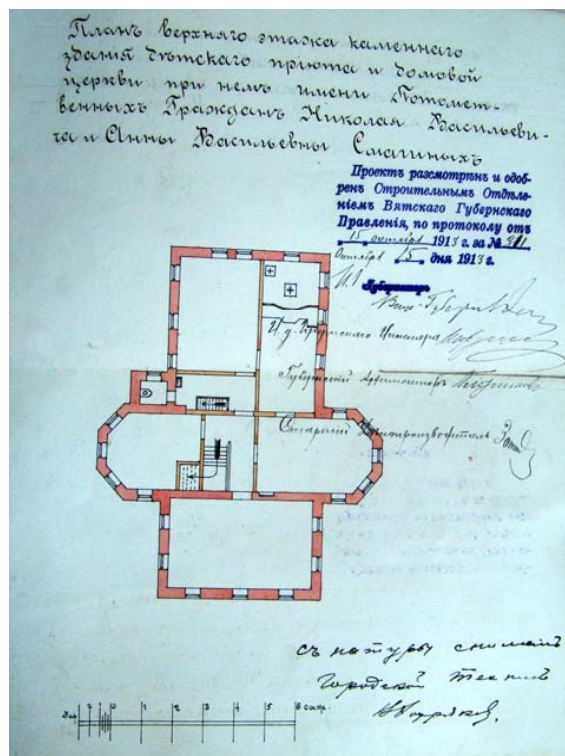 Планъ верхняго этажа каменнаго
зданія дѣтскаго пріюта и домовой
церкви при немъ имени Потомст-
венныхъ Гражданъ Николая Васильеви-
ча и Анны Васильевны Смагиныхъ
Проектъ разсмотрѣнъ и одоб-
ренъ Строительнымъ Отдѣле-
ніемъ Вятскаго Губернскаго
Правленія, по протоколу отъ
15 октября 1913 г. за №
Октября 15 дня 1913 г.
Губернаторъ
Вице-Губерн
И. д. Губернскаго Инженера
Губернскій Архитекторъ
Старшій Дѣлопроизводитель
съ натуры снималъ
Городской Техникъ
2 1 0 1 2 3 4 5 6 саж.